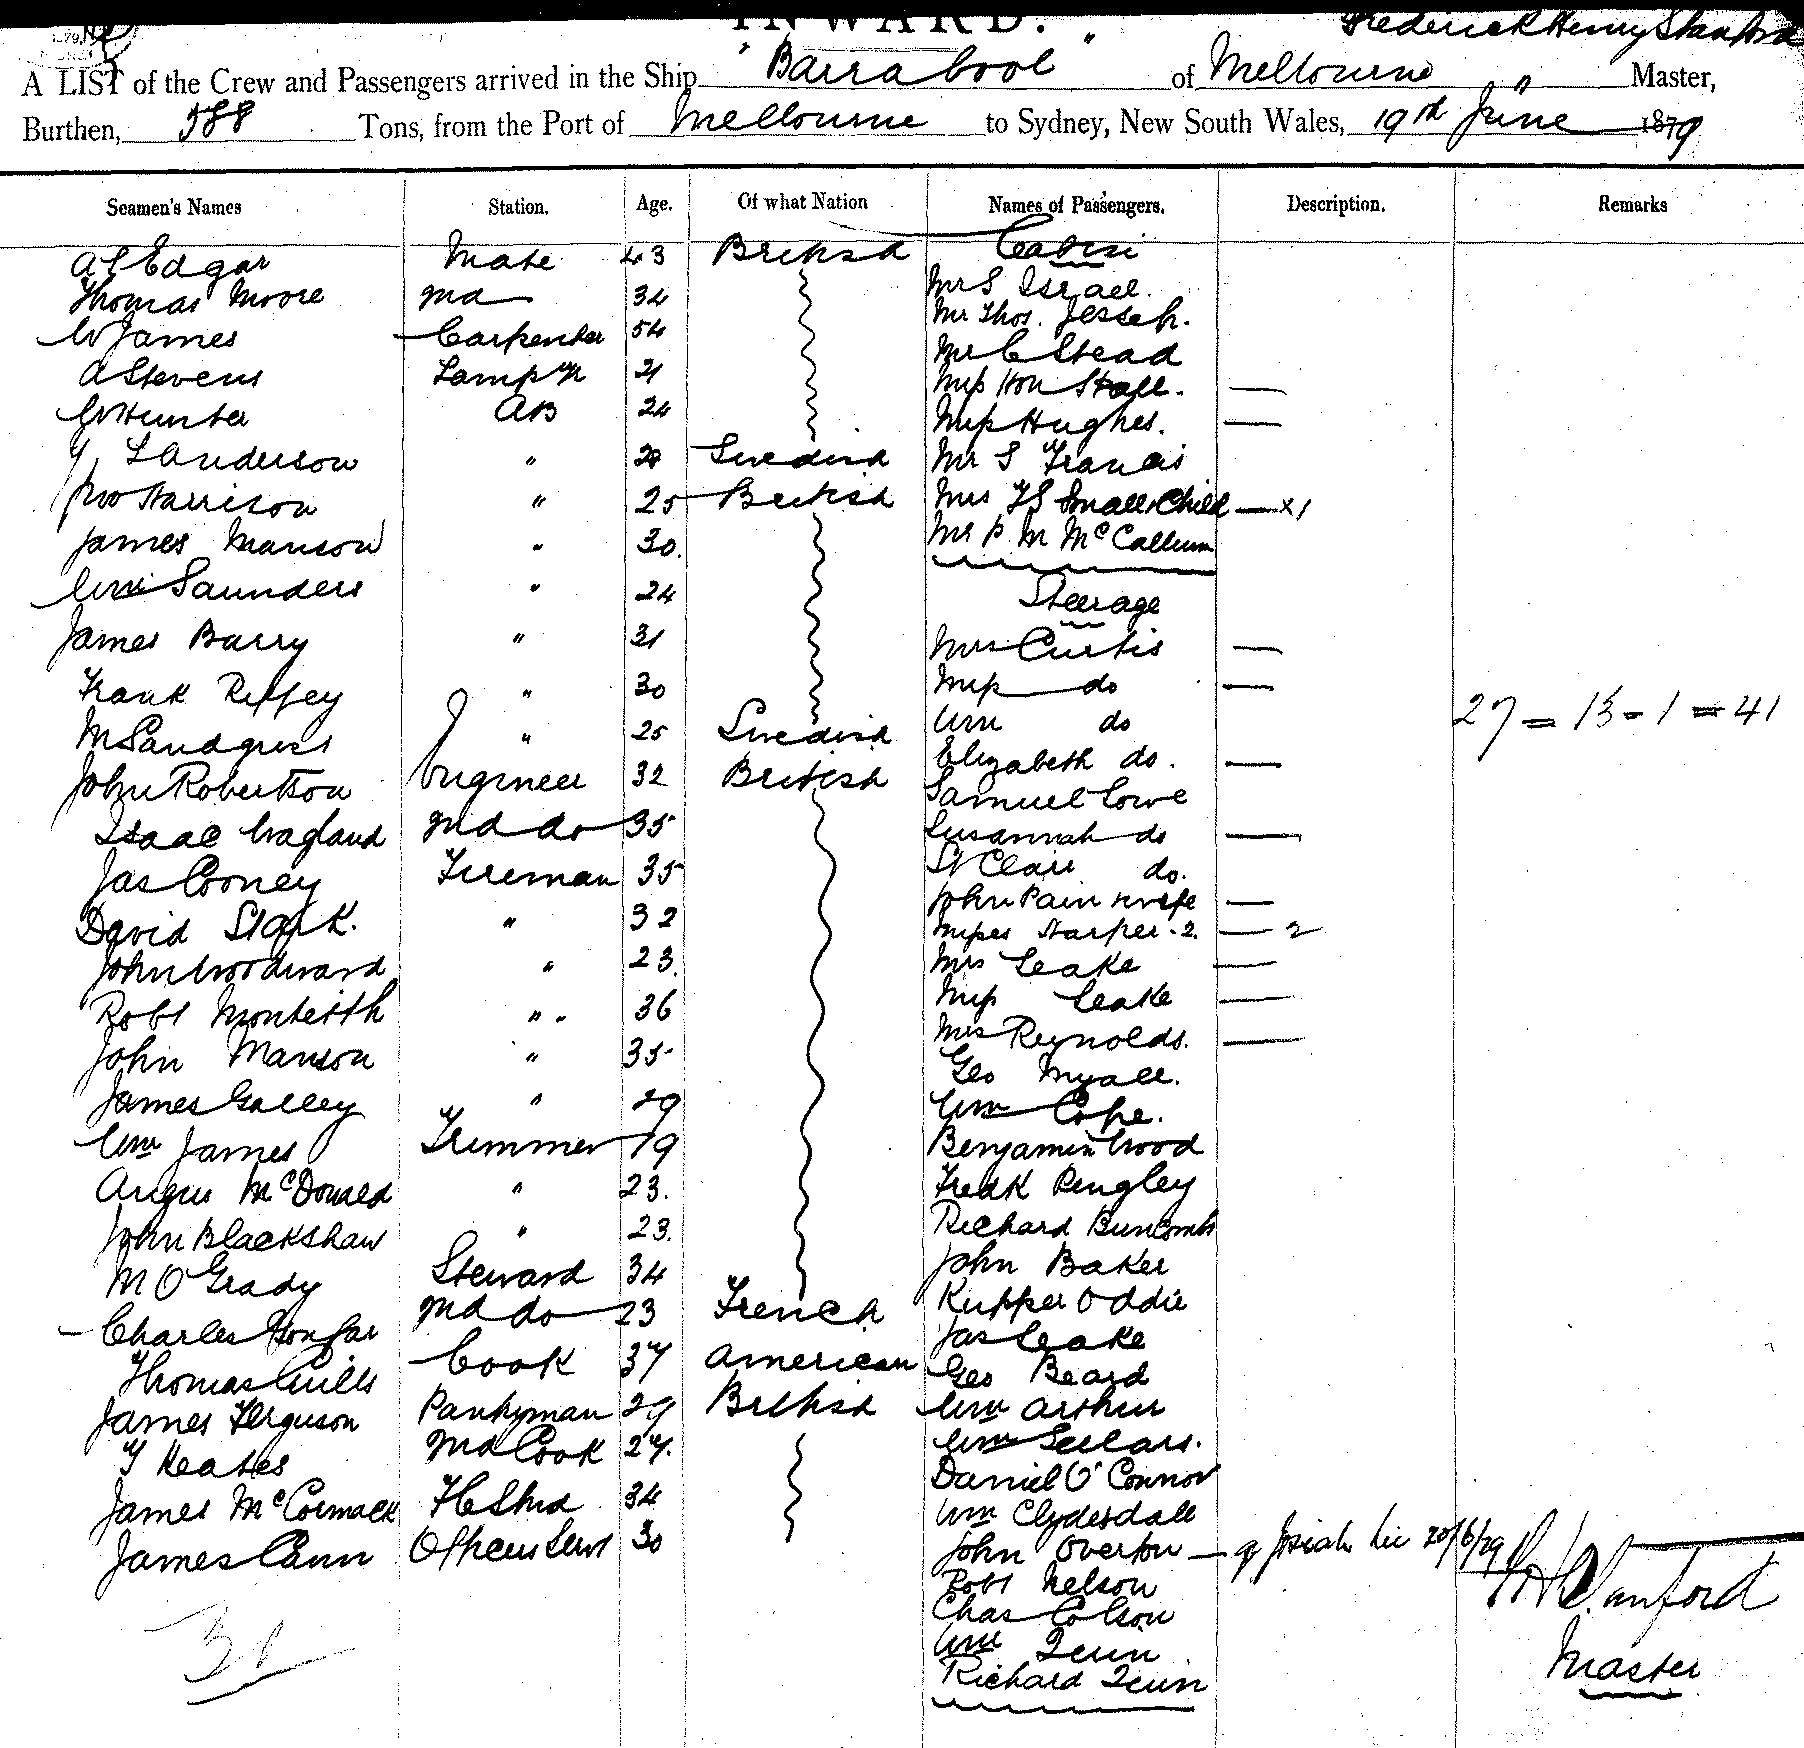 INWARD.
Frederick Henry Stanford
A LIST of the Crew and Passengers arrived in the Ship "Barrabool" of Melbourne " Master,
Burthen, 588 Tons, from the Port of Melbourne to Sydney, New South Wales, 19th June 1879
Seamen's Names Station. Age. Of what Nation Names of Passengers. Description. Remarks
A Edgar Mate 43 British Cabin
Thomas Moore 2nd 34 Mr S Israel.
W James Carpenter 54 Mr Thos. Jesseh.
A Stevens Lamp 21 Mr C Stead
W Hunter AB 24 Miss Von Stall. —
L Anderson " 29 Swedish Miss Hughes. —
Jno Harrison " 25 British Mr S Francis
James Manson " 30. Mrs FS Small & Child — x 1
Wm Saunders " 24 Mr P. M McCallum
James Barry " 31 Steerage
Frank Riffey " 30 Mrs Curtis —
M Sandgrist " 25 Swedish Miss do —
John Robertson Engineer 32 British Wm do
Isaac Wagland 2nd do 35 Elizabeth do. —
Jas Cooney Fireman 35 Samuel Lowe
David Stark. " 32 Susannah do —
John Woodward " 23. St Clair do.
Robt Monteith " 36 John Pain & wife —
John Manson " 35 Misses Harper - 2. — 2
James Galley " 29 Mrs Leake —
Wm James Trimmer 19 Miss Leake —
Angus McDonald " 23. Mrs Reynolds. —
John Blackshaw " 23. Geo Myall.
M O'Grady Steward 34 Wm Cope.
Charles 2nd do 23 French Benjamin Wood
Thomas Cook 37 American Fredk Pengley
James Ferguson Pantryman 29 British Richard Buncombe
Y Keates 2nd Cook 27. John Baker
James McCormack F C Stwd 34 Kupper Oddie
James Cann Officers Servt 30 Jas Leake
Geo Beard
Wm Arthur
Wm Sellars.
Daniel O'Connor
Wm Clydesdale
John Overton — Josiah 20/6/79
Robt Nelson
Chas Colson
Wm Quin
Richard Quin
27 = 13 - 1 = 41
F H Stanford
Master
30